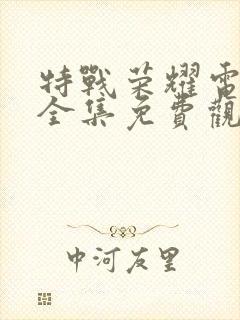 特戰荣耀電
全集免費觀
中河友里